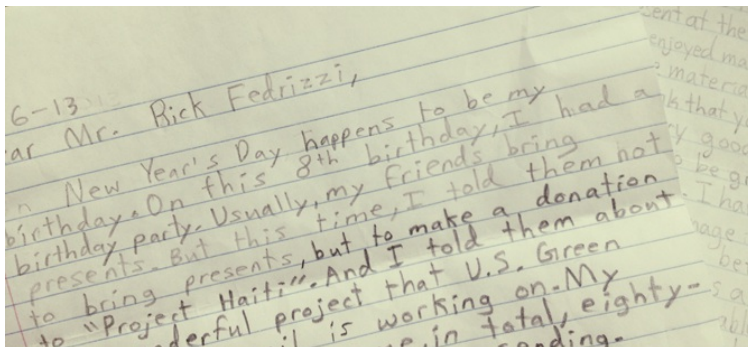 6-13
ar Mr. Rick Fedrizzi,
n New Year's Day happens to be my
birthday. On this 8th birthday, I had a
birthday party. Usually, my friends bring
presents. But this time, I told them not
to bring presents, but to make a donation
to "Project Haiti". And I told them about
derful project that U.S. Green
il is working on. My
e, in total, eighty-
nding.
ent at the
enjoyed ma
materia
k that y
y good
o be g
I ha
nage
be
s a
abl